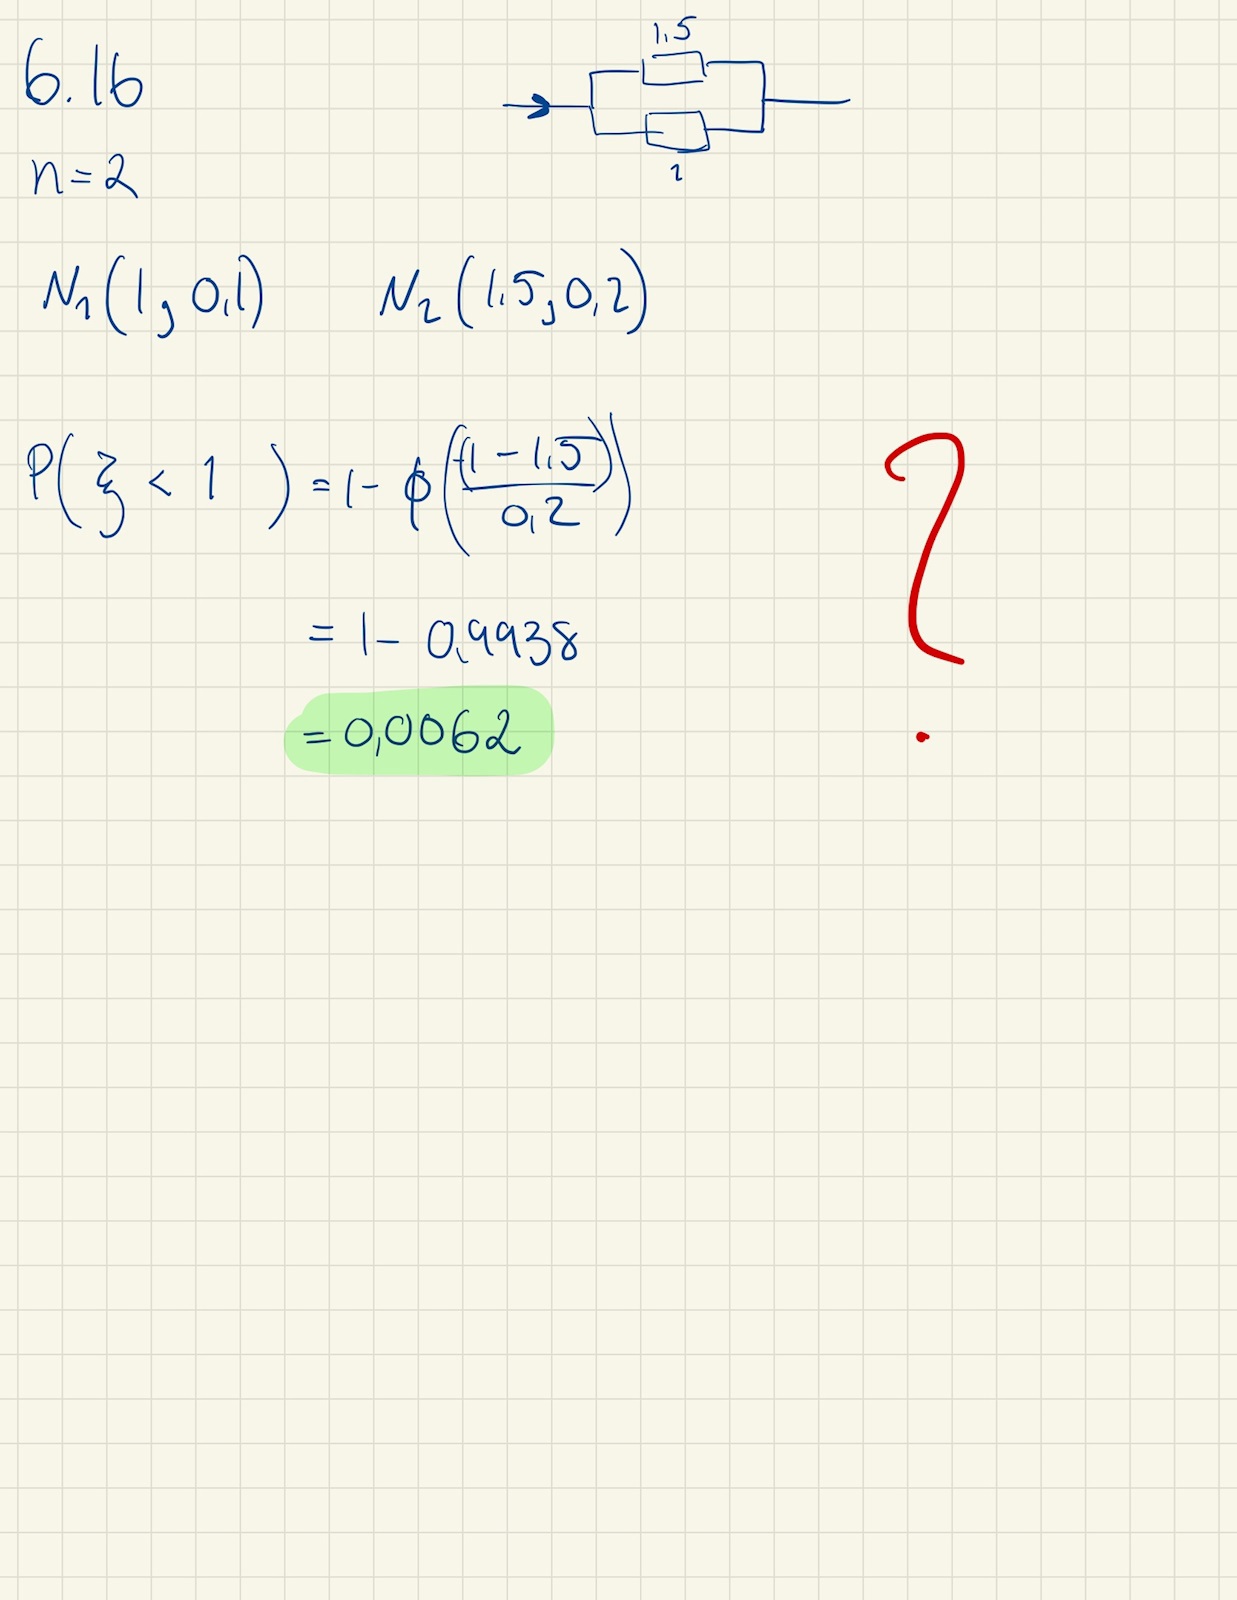 6.16
1,5
1
n=2
N₁(1; 0,1) N₂(1,5; 0,2)
P(ξ < 1 ) = 1 - ϕ((1 - 1,5)/0,2)
= 1 - 0,9938
= 0,0062
?